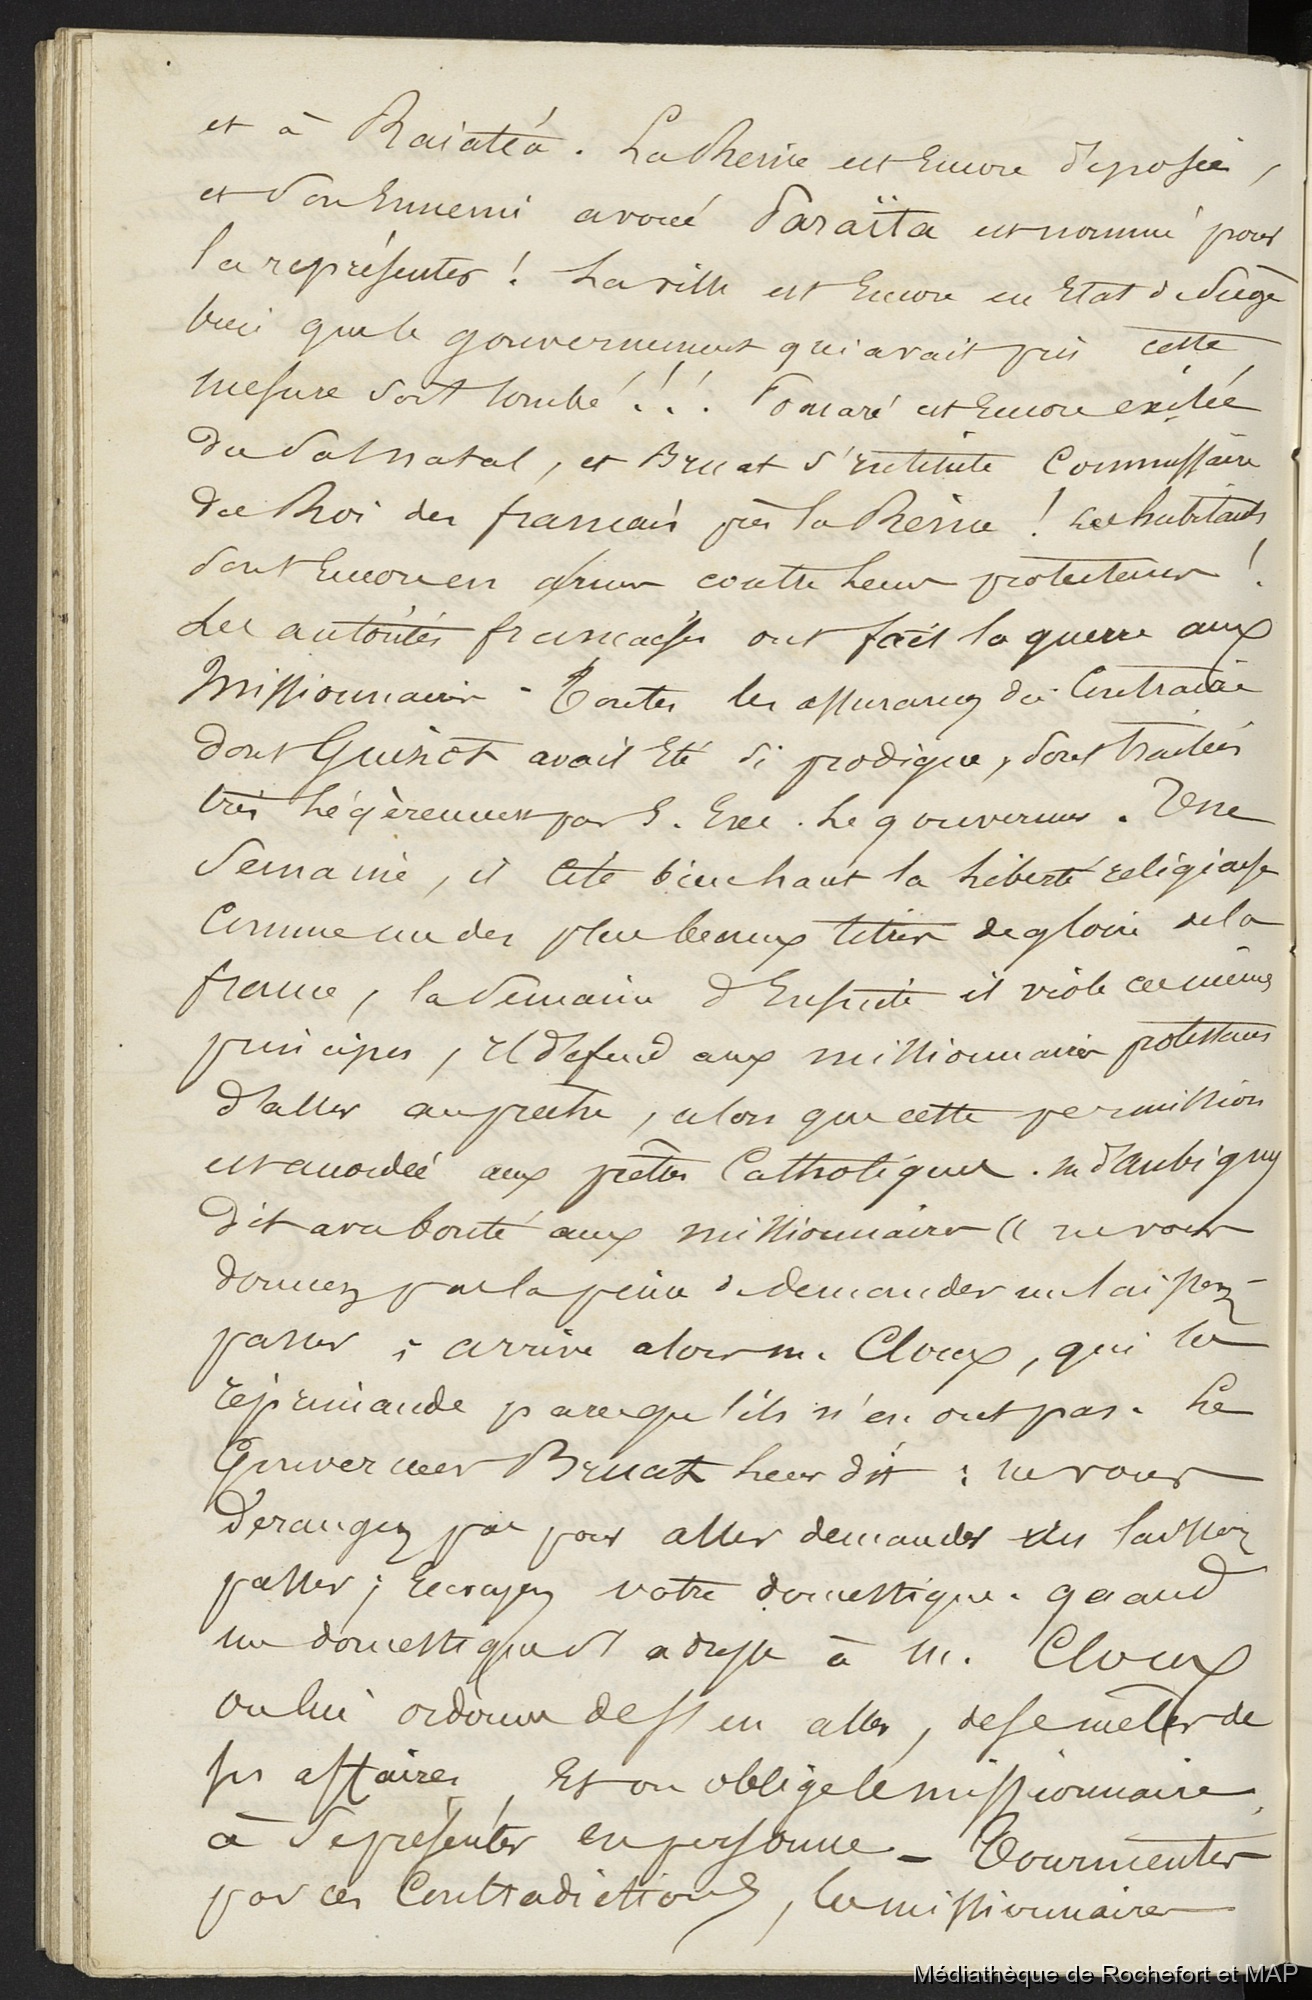 et à Raiatéa. La Reine est Encore déposée,
et son Ennemi avoué Paraïta est nommé pour
la représenter! La ville est Encore en Etat de siège
bien que le gouvernement qui avait pris cette
mesure soit tombé!!! Pomaré est Encore exilée
du sol natal, et Bruat s'intitule Commissaire
du Roi des français près la Reine! Les habitants
sont Encore en armes contre leurs protecteurs!
Les autorités françaises ont fait la guerre aux
Missionnaires - Toutes les assurances du Contraire
dont Guizot avait Eté si prodigue, sont traitées
très légèrement par S. Exc. Le gouverneur. Une
Semaine, il Cite bien haut la liberté religieuse
Comme un des plus beaux titres de gloire de la
france, la Semaine d'Ensuite il viole ces mêmes
principes, Il défend aux missionnaires protestans
d'aller au prêche, alors que cette permission
est accordée aux prêtres Catholiques. M d'Aubigny
dit avec bonté aux missionnaires " ne vous
donnez pas la peine de demander un laissez-
passer; arrive alors M. Cloux, qui les
réprimande parcequ'ils n'en ont pas. Le
Gouverneur Bruat leur dit: ne vous
dérangez pas pour aller demander un laissez
passer; Envoyez votre domestique. quand
un domestique s'adresse à M. Cloux
on lui ordonne de s'en aller, de se mêler de
ses affaires, Et on oblige le missionnaire
à se présenter en personne - Tourmentés
par ces Contradictions, les missionnaires
Médiathèque de Rochefort et MAP